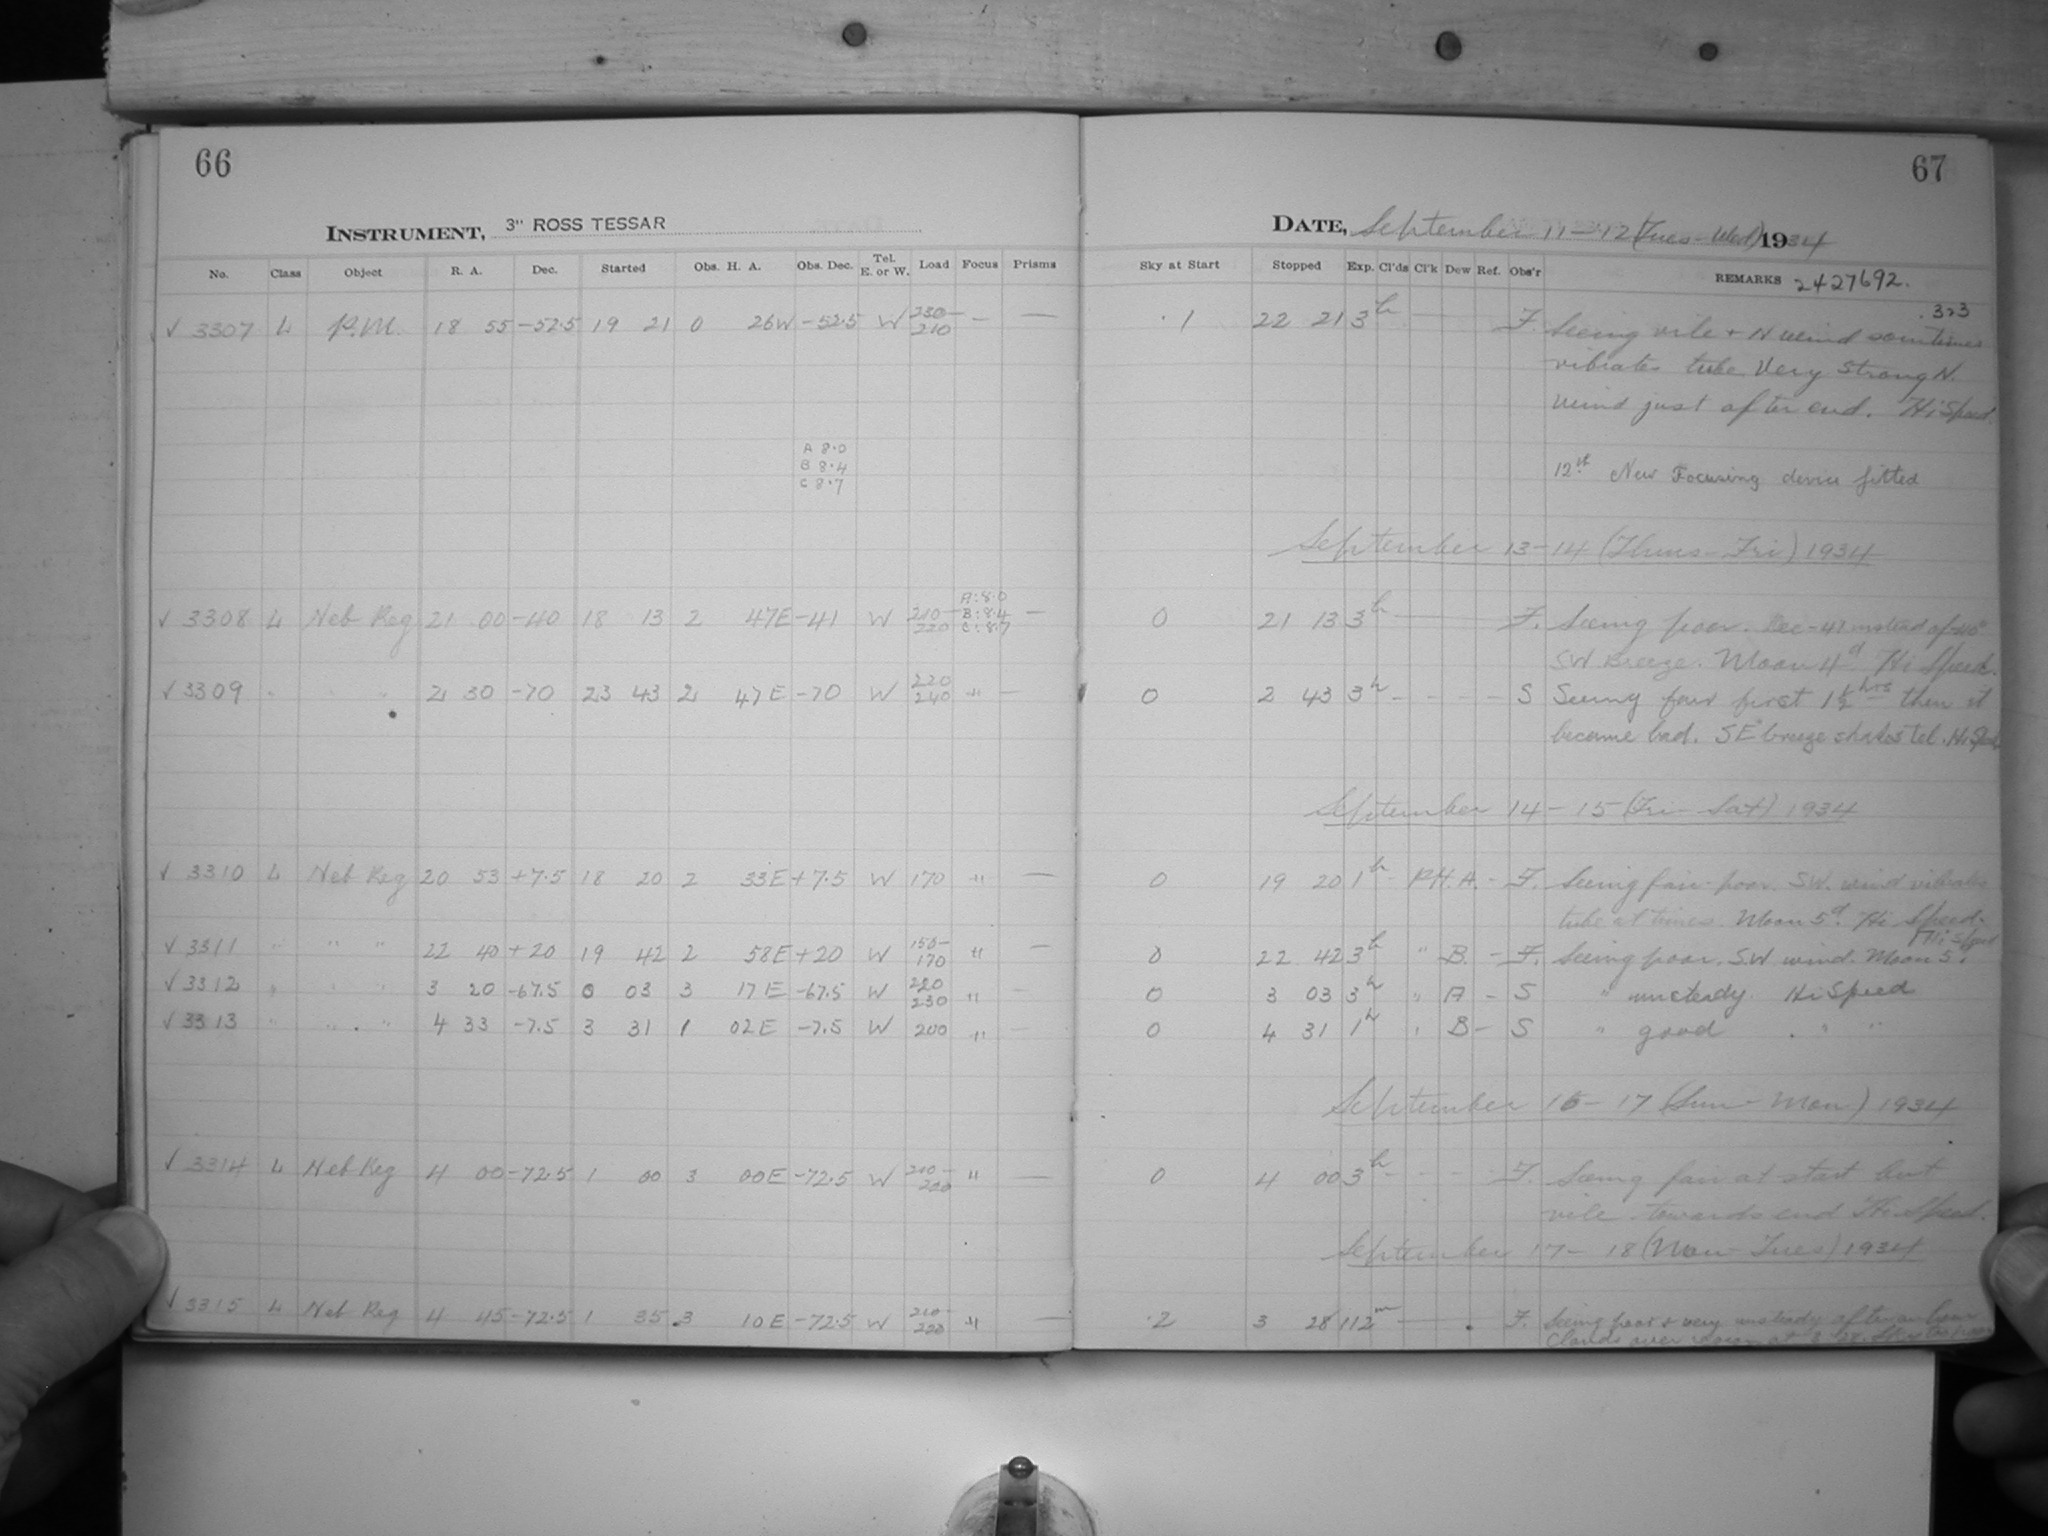 66
INSTRUMENT, 3" ROSS TESSAR
No. Class Object R. A. Dec. Started Obs. H. A. Obs. Dec. Tel. E. or W. Load Focus Prisms
✓ 3307 L P.M. 18 55 -52.5 19 21 0 26W -52.5 W 230- 210 — —
A 8.0
B 8.4
C 8.7
✓ 3308 L Neb Reg 21 00 -40 18 13 2 47E -41 W 210- 220 A:8.0 B:8.4 C:8.7 —
✓ 3309 " " " 21 30 -70 23 43 2 47E -70 W 220 240 " —
✓ 3310 L Neb Reg 20 53 +7.5 18 20 2 33E +7.5 W 170 -"- —
✓ 3311 " " " 22 40 +20 19 42 2 58E +20 W 150- 170 " —
✓ 3312 " " " 3 20 -67.5 0 03 3 17E -67.5 W 220 230 " —
✓ 3313 " " " 4 33 -7.5 3 31 1 02E -7.5 W 200 " —
✓ 3314 L Neb Reg 4 00 -72.5 1 00 3 00E -72.5 W 210- 220 " —
✓ 3315 L Neb Reg 4 45 -72.5 1 35 3 10E -72.5 W 210- 220 " —
67
DATE, September 11-12 (Tues-Wed) 1934
Sky at Start Stopped Exp. Cl'ds Cl'k Dew Ref. Obs'r REMARKS 2427692.
.323
.1 22 21 3h — — F. Seeing vile + N wind sometimes
vibrates tube Very Strong N.
wind just after end. Hi Speed.
12th New Focusing device fitted
September 13-14 (Thurs-Fri) 1934
0 21 13 3h — — F. Seeing poor. Dec -41 instead of -40°
SW Breeze. Moon 4d Hi Speed.
0 2 43 3h - - - - S Seeing fair first 1½ hrs then it
became bad. SE breeze shakes tel. Hi Speed
September 14-15 (Fri-Sat) 1934
0 19 20 1h - P.H.A. - F. Seeing fair-poor. S.W. wind vibrates
tube at times. Moon 5d. Hi Speed.
Hi Speed
0 22 42 3h " B. - F. Seeing poor. S.W wind. Moon 5d.
0 3 03 3h " A - S " unsteady. Hi Speed
0 4 31 1h " B - S " good " "
September 16-17 (Sun-Mon) 1934
0 4 00 3h - - - - F. Seeing fair at start but
vile towards end Hi Speed.
September 17-18 (Mon-Tues) 1934
.2 3 28 112m — — F. Seeing poor & very unsteady after an hour
Clouds over region at 3 28